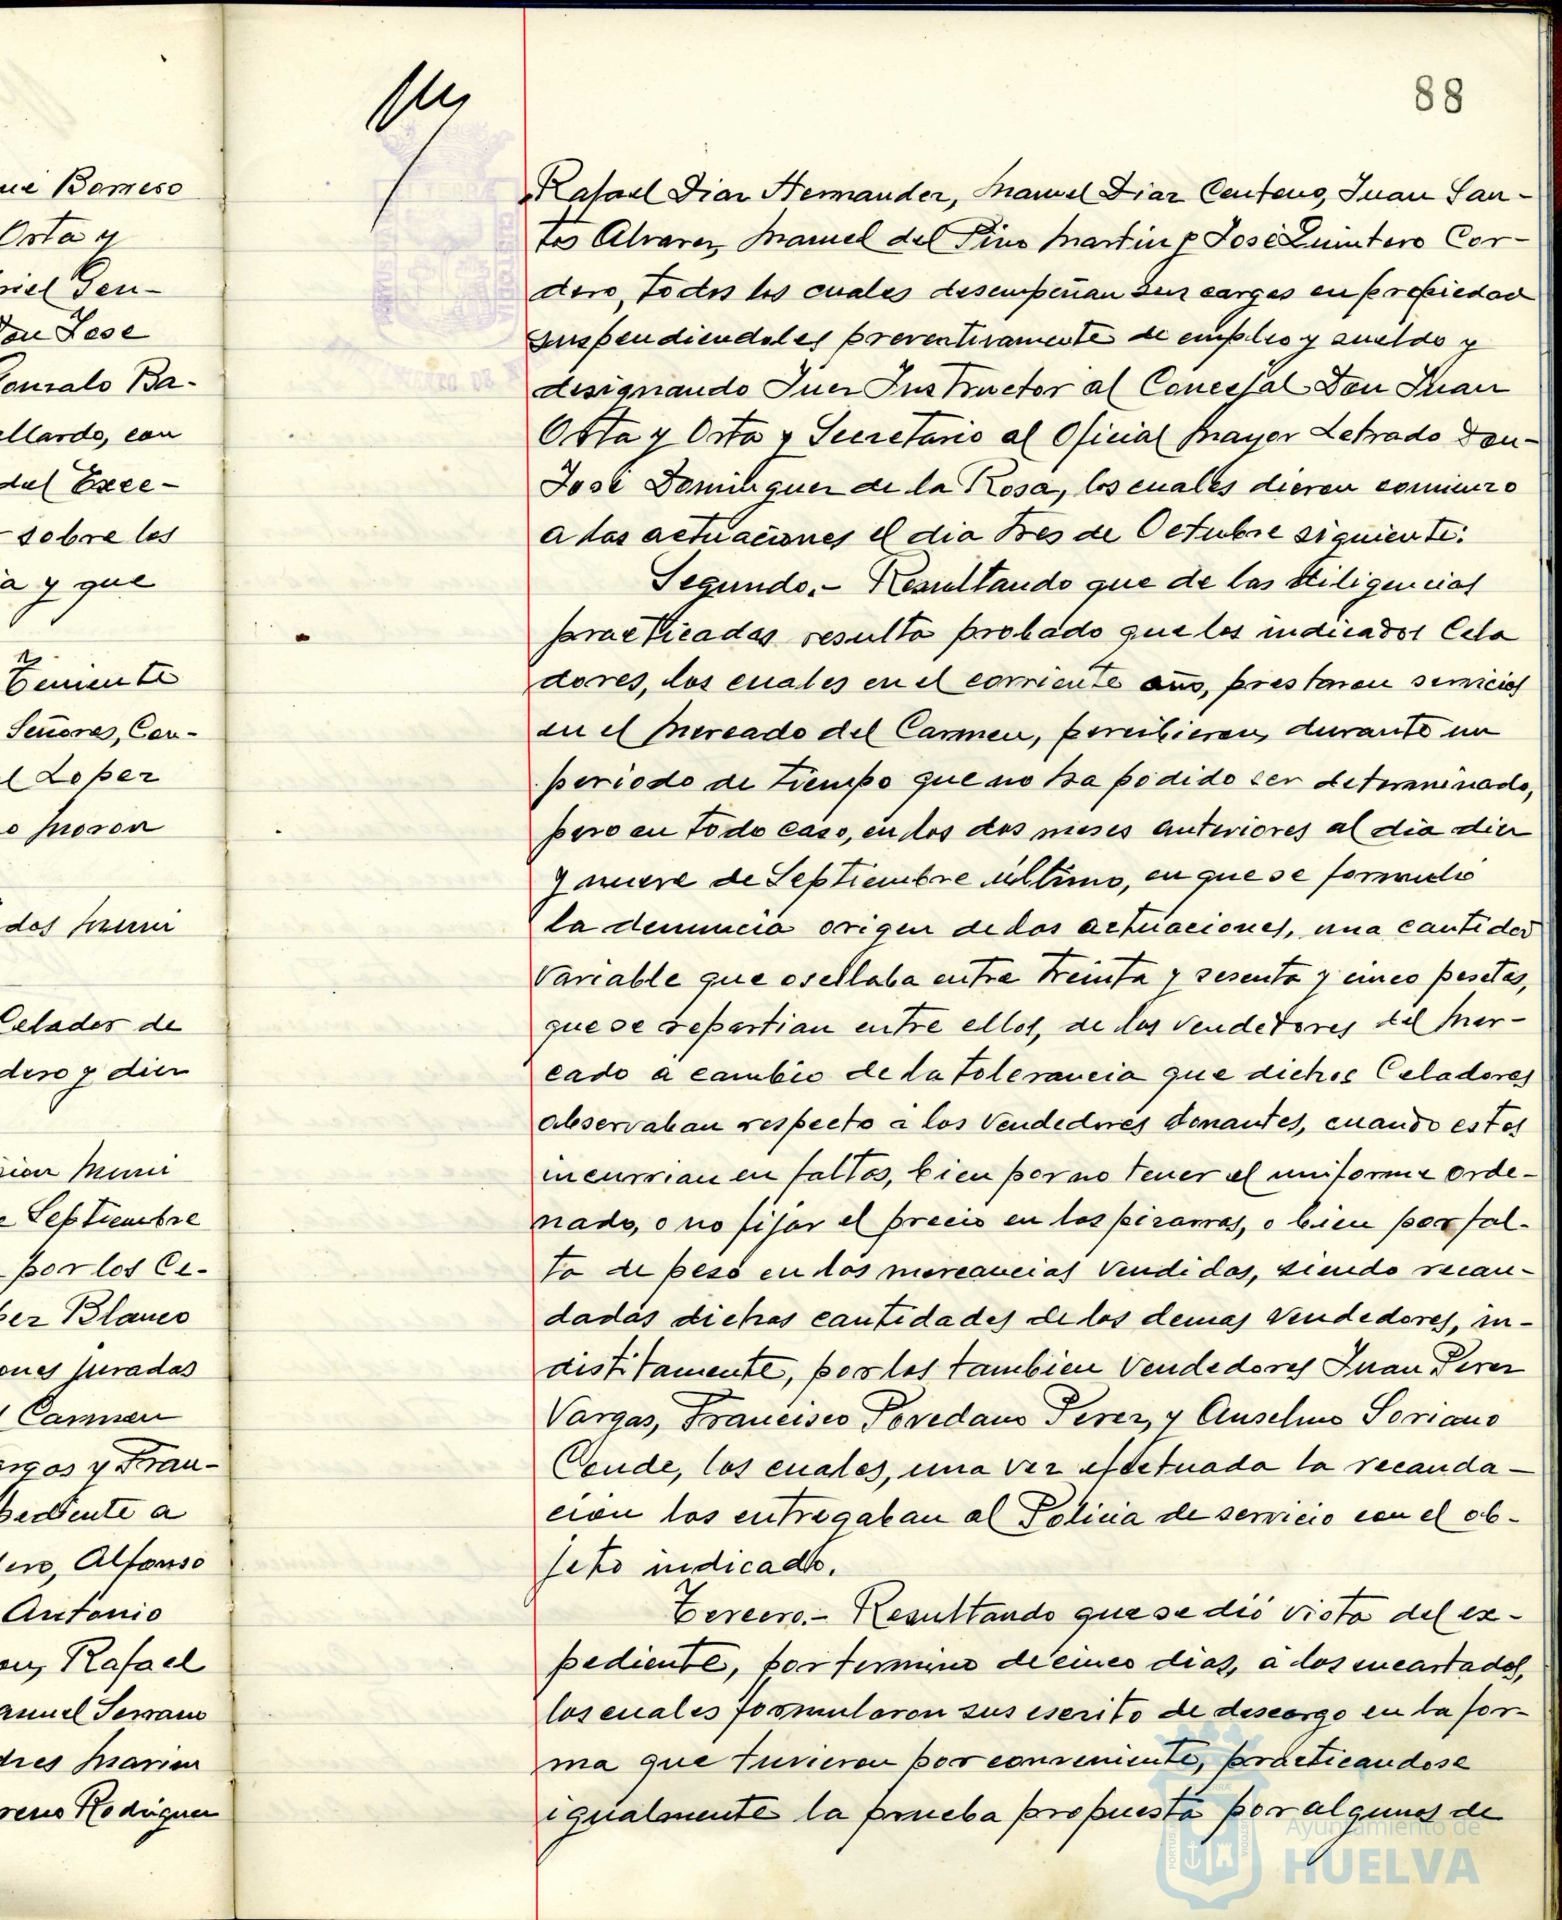 88
Rafael Diaz Hernandez, Manuel Diaz Centeno, Juan San-
tos Alvarez, Manuel del Pino Martin y José Quintero Cor-
dero, todos los cuales desempeñan sus cargos en propiedad
suspendiendoles preventivamente de empleo y sueldo y
designando Juez Instructor al Concejal Don Juan
Orta y Orta y Secretario al Oficial Mayor Letrado Don
José Dominguez de la Rosa, los cuales dieron comienzo
a las actuaciones el dia tres de Octubre siguiente.
Segundo.- Resultando que de las diligencias
practicadas resulta probado que los indicados Cela
dores, los cuales en el corriente año, prestaron servicios
en el Mercado del Carmen, percibieron, durante un
periodo de tiempo que no ha podido ser determinado,
pero en todo caso, en los dos meses anteriores al dia diez
y nueve de Septiembre último, en que se formuló
la denuncia origen de las actuaciones, una cantidad
variable que oscilaba entre treinta y sesenta y cinco pesetas,
que se repartian entre ellos, de los vendedores del Mer-
cado a cambio de la tolerancia que dichos Celadores
observaban respecto a los vendedores donantes, cuando estos
incurrian en faltas, bien por no tener el uniforme orde-
nado, o no fijar el precio en las pizarras, o bien por fal-
ta de peso en las mercancias vendidas, siendo recau-
dadas dichas cantidades de los demas vendedores, in-
distitamente, por los tambien vendedores Juan Perez
Vargas, Francisco Povedano Perez, y Anselmo Soriano
Conde, los cuales, una vez efectuada la recauda-
cion las entregaban al Policia de servicio con el ob-
jeto indicado.
Tercero.- Resultando que se dió vista del ex-
pediente, por termino de cinco dias, a los encartados,
los cuales formularon sus escrito de descargo en la for-
ma que tuvieron por conveniente, practicandose
igualmente la prueba propuesta por algunos de
Borrero
Orta y
niel Gen-
Don Jose
Gonzalo Ba-
llardo, con
del Exce-
sobre los
a y que
Teniente
Señores, Con-
l Lopez
o Moron
dos Muni
Celador de
dero y diez
sion Muni
e Septiembre
por los Ce-
pez Blanco
ones juradas
l Carmen
argas y Fran-
pediente a
ero, Alfonso
Antonio
on, Rafael
anuel Serrano
dres Marin
reno Rodriguez
Ayuntamiento de
HUELVA